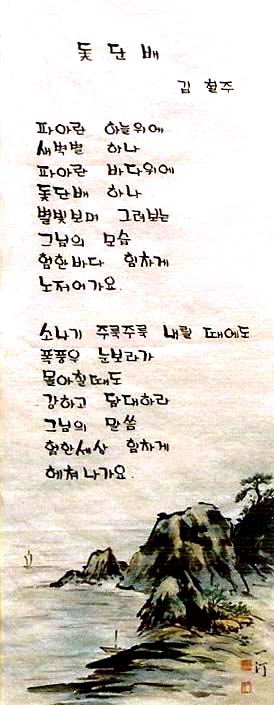 돛단배
김 철주
파아란 하늘위에
새벽별 하나
파아란 바다위에
돛단배 하나
별빛보며 그려보는
그님의 모습
험한바다 힘차게
노저어가요.
소나기 주룩주룩 내릴 때에도
폭풍우 눈보라가
몰아칠때도
강하고 담대하라
그님의 말씀
험한세상 힘차게
헤쳐나가요.